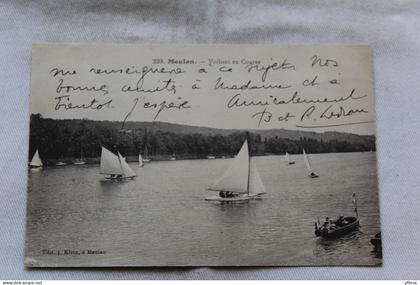 239. Meulan. — Voiliers en Course
me renseigner à ce sujet. Nos
bonnes amitiés à Madame et à
bientôt j'espère Amicalement
B et R.
Edit. J. Klein, à Meulan